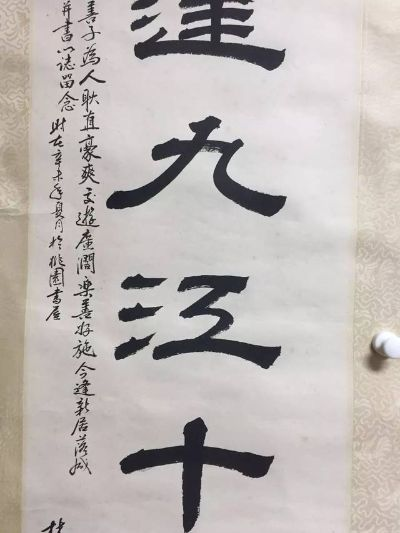 九江十
善子為人耿直豪爽交遊廣濶樂善好施今逢新居落成
并書以誌留念 时在辛未年夏月於桃園書屋